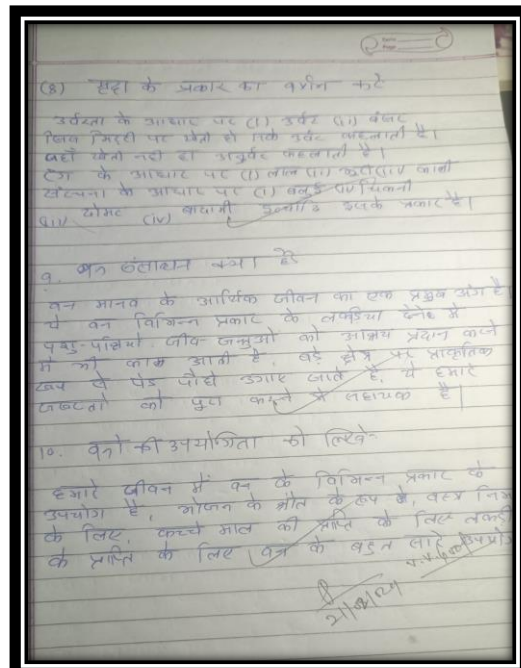 (8) मृदा के प्रकार का वर्णन करें
उर्वरता के आधार पर (i) उर्वर (ii) बंजर
जिस मिट्टी पर खेती हो सके उर्वर कहलाती है।
जहाँ खेती नहीं हो अनुर्वर कहलाती है।
रंग के आधार पर (i) लाल (ii) काली
संरचना के आधार पर (i) बलुई (ii) चिकनी
(iii) दोमट (iv) इत्यादि इसके प्रकार है।
9. वन संसाधन क्या है
वन मानव के आर्थिक जीवन का एक प्रमुख अंग है।
ये वन विभिन्न प्रकार के लकड़िया देने में
पशु-पक्षियों जीव जन्तुओं को आश्रय प्रदान करने
में भी काम आती है, बड़े क्षेत्र पर प्राकृतिक
रूप से पेड़ पौधे उगाए जाते है, ये हमारे
जरूरतों को पूरा करने में सहायक है।
10. वनों की उपयोगिता को लिखें-
हमारे जीवन में वन के विभिन्न प्रकार के
उपयोग है, भोजन के स्रोत के रूप में, वस्त्र
के लिए, कच्चे माल की प्राप्ति के लिए लकड़ी
के प्राप्ति के लिए वन के बहुत सारे